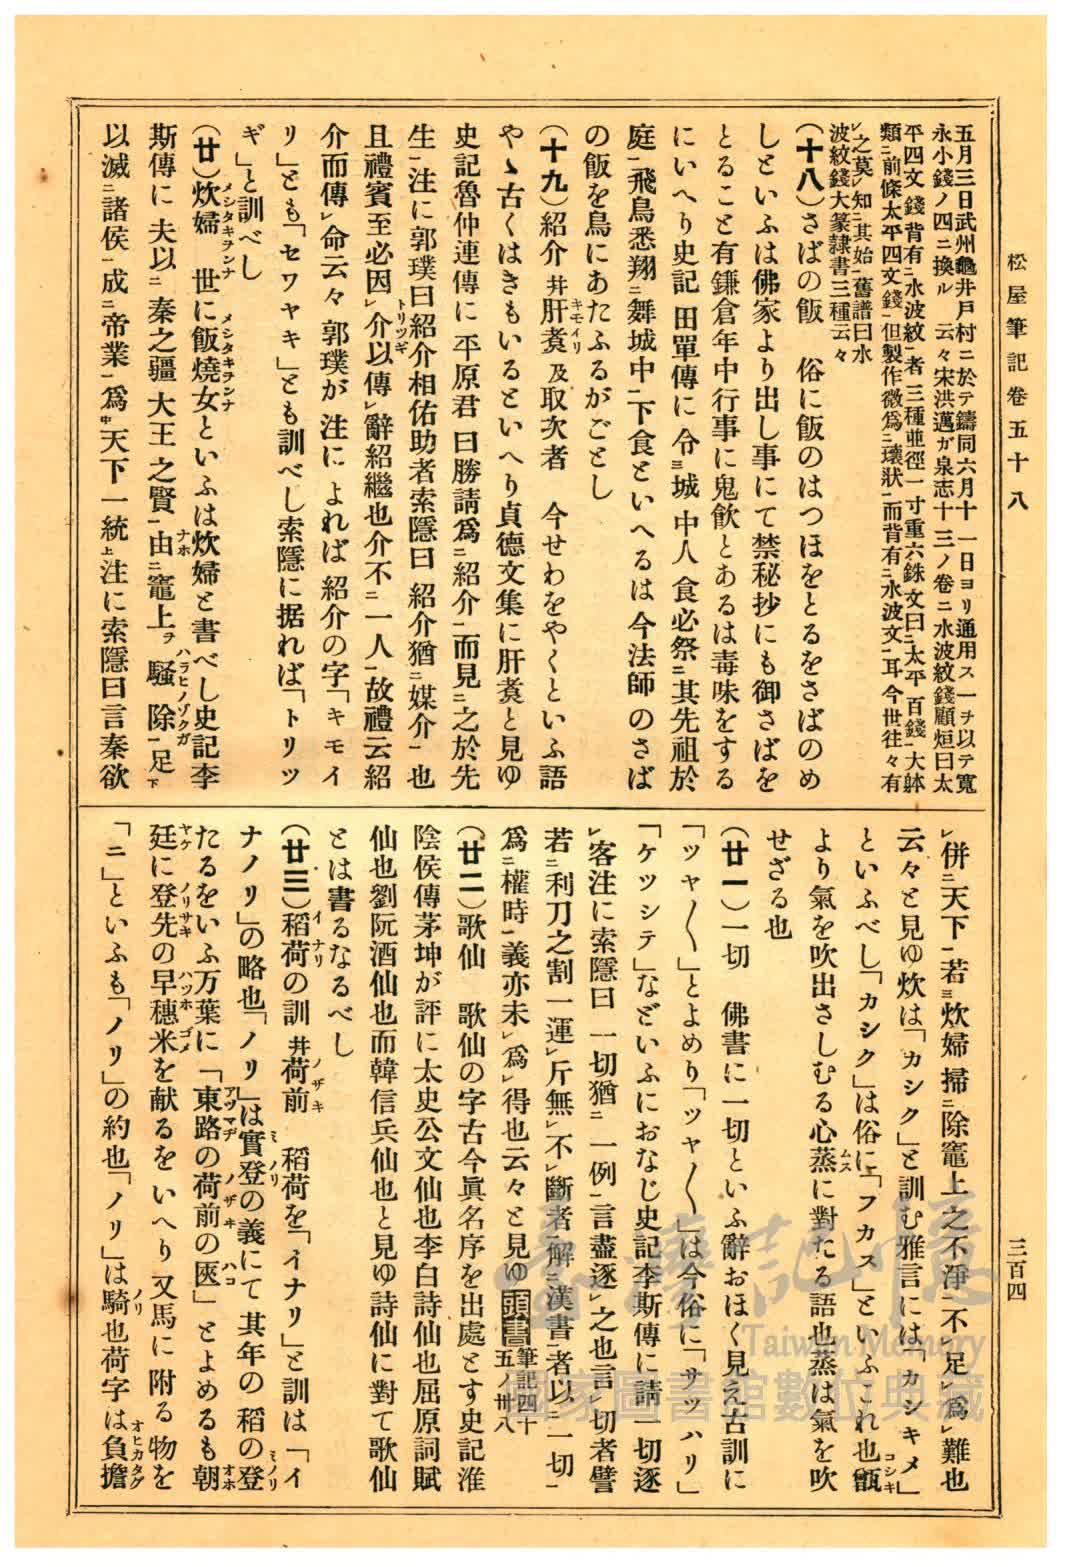 松屋筆記卷五十八
三百四
五月三日武州龜井戸村ニ於テ鑄同六月十一日ヨリ通用ス一ヲ以テ寬
永小錢ノ四ニ換ル 云々宋洪邁ガ泉志十三ノ卷ニ水波紋錢顧烜曰太
平四文錢背有ニ水波紋一者三種並徑一寸重六銖文曰ニ太平百錢一大躰
類ニ前條太平四文錢一但製作微爲ニ瓌狀一而背有ニ水波文一耳今世徃々有
レ之莫レ知ニ其始一舊譜曰水
波紋錢大篆隷書三種云々
(十八)さばの飯 俗に飯のはつほをとるをさばのめ
しといふは佛家より出し事にて禁秘抄にも御さばを
とること有鎌倉年中行事に鬼飮とあるは毒味をする
にいへり史記田單傳に令ニ城中人食必祭ニ其先祖於
庭一飛鳥悉翔ニ舞城中一下食といへるは今法師のさば
の飯を鳥にあたふるがごとし
(十九)紹介井肝煑及取次者 今せわをやくといふ語
キモイリ
やゝ古くはきもいるといへり貞德文集に肝煑と見ゆ
史記魯仲連傳に平原君曰勝請爲ニ紹介一而見ニ之於先
生一注に郭璞曰紹介相佑助者索隱曰紹介猶ニ媒介一也
且禮賓至必因レ介以傳レ辭紹繼也介不ニ一人一故禮云紹
トリツギ
介而傳レ命云々郭璞が注によれば紹介の字「キモイ
リ」とも「セワヤキ」とも訓べし索隱に据れば「トリツ
ギ」と訓べし
(廿)炊婦 世に飯燒女といふは炊婦と書べし史記李
メシタキヲンナ メシタキヲンナ
斯傳に夫以ニ秦之疆大王之賢一由ニ竈上ヲ騷除一足下
ナホ ハラヒノゾクガ
以滅ニ諸侯一成ニ帝業一爲中天下一統上注に索隱曰言秦欲
レ併ニ天下一若ニ炊婦掃ニ除竈上之不淨一不レ足レ爲レ難也
云々と見ゆ炊は「カシク」と訓む雅言には「カシキメ」
といふべし「カシク」は俗に「フカス」といふこれ也甑
コシキ
より氣を吹出さしむる心蒸に對たる語也蒸は氣を吹
ムス
せざる也
(廿一)一切 佛書に一切といふ辭おほく見え古訓に
「ツヤ〱」とよめり「ツヤ〱」は今俗に「サツハリ」
「ケツシテ」などいふにおなじ史記李斯傳に請一切逐
レ客注に索隱曰一切猶ニ一例一言盡逐レ之也言レ切者譬
若ニ利刀之割一運レ斤無レ不レ斷者一解ニ漢書一者以ニ一切一
爲ニ權時一義亦未レ爲レ得也云々と見ゆ頭書筆記四十
五ノ卅八
(廿二)歌仙 歌仙の字古今眞名序を出處とす史記淮
陰侯傳茅坤が評に太史公文仙也李白詩仙也屈原詞賦
仙也劉阮酒仙也而韓信兵仙也と見ゆ詩仙に對て歌仙
とは書るなるべし
(廿三)稻荷の訓井荷前 稻荷を「イナリ」と訓は「イ
イナリ ノザキ
ナノリ」の略也「ノリ」は實登の義にて其年の稻の登
ミノリ ミノリ
たるをいふ万葉に「東路の荷前の医」とよめるも朝
アヅマヂ ノザキ ハコ オホ
廷に登先の早穗米を献るをいへり又馬に附る物を
ヤケ ノリサキ ハツホ ゴメ
「ニ」といふも「ノリ」の約也「ノリ」は騎也荷字は負擔
ノリ オヒカタグ
臺灣記憶
Taiwan Memory
國家圖書館數位典藏